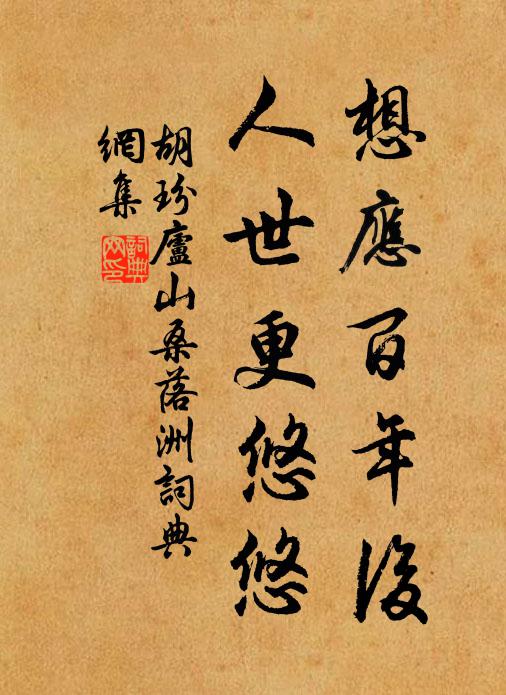 想應百年後
人世更悠悠
胡玢廬山桑落洲詞典
網集
詞典
网印